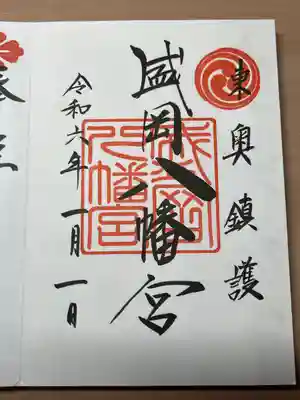 東奥鎮護
盛岡八幡宮
盛岡八幡宮
令和六年一月一日
奉